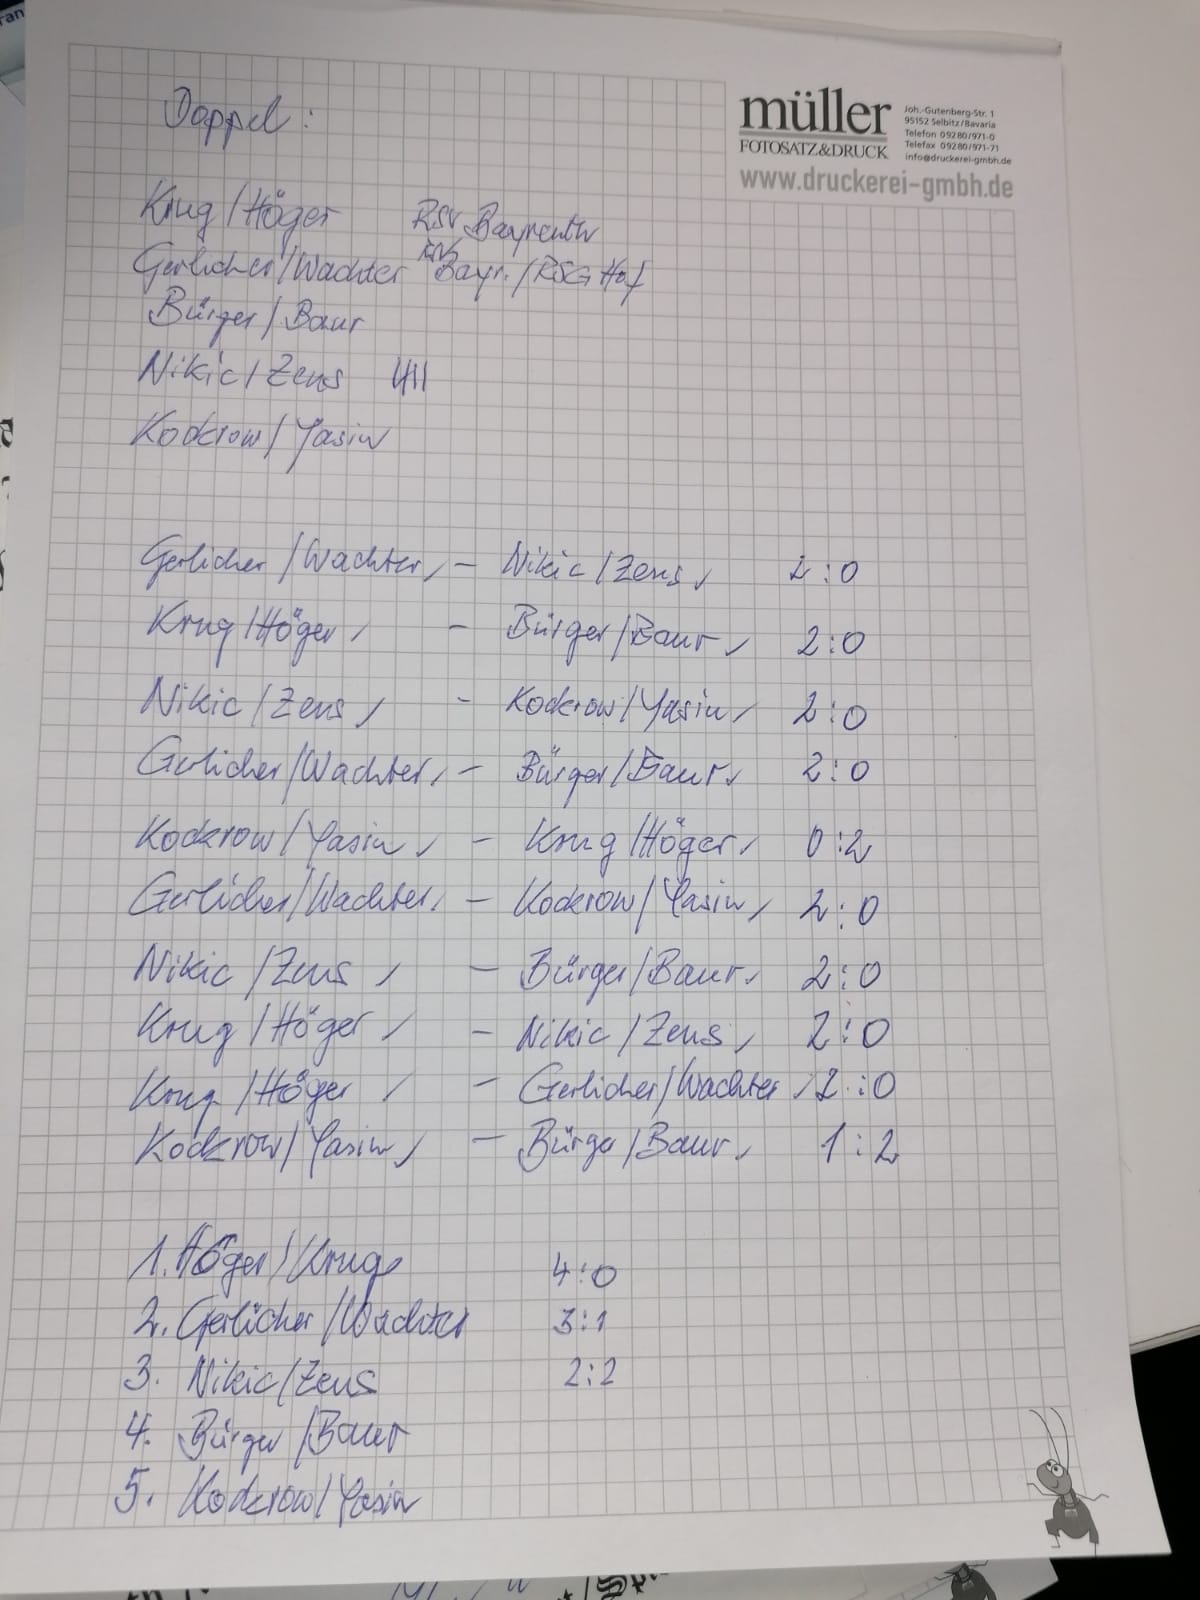 Doppel:
müller
FOTOSATZ&DRUCK
Joh.-Gutenberg-Str. 1
95152 Selbitz/Bavaria
Telefon 09280/971-0
Telefax 09280/971-71
info@druckerei-gmbh.de
www.druckerei-gmbh.de
Krug/Höger RSV Bayreuth
Gerlicher/Wachter RSV Bayr./RSG Hof
Bürger/Baur
Nikic/Zens
Kockrow/Yasin
Gerlicher/Wachter, - Nikic/Zens, 2:0
Krug/Höger, - Bürger/Baur, 2:0
Nikic/Zens, - Kockrow/Yasin, 2:0
Gerlicher/Wachter, - Bürger/Baur, 2:0
Kockrow/Yasin, - Krug/Höger, 0:2
Gerlicher/Wachter, - Kockrow/Yasin, 2:0
Nikic/Zens, - Bürger/Baur, 2:0
Krug/Höger, - Nikic/Zens, 2:0
Krug/Höger, - Gerlicher/Wachter, 2:0
Kockrow/Yasin, - Bürger/Baur, 1:2
1. Höger/Krug 4:0
2. Gerlicher/Wachter 3:1
3. Nikic/Zens 2:2
4. Bürger/Baur
5. Kockrow/Yasin